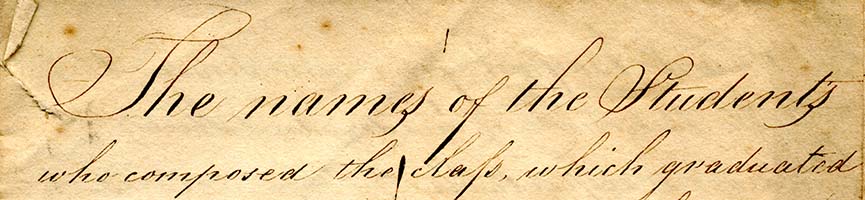 The names of the Students
who composed the claſs, which graduated